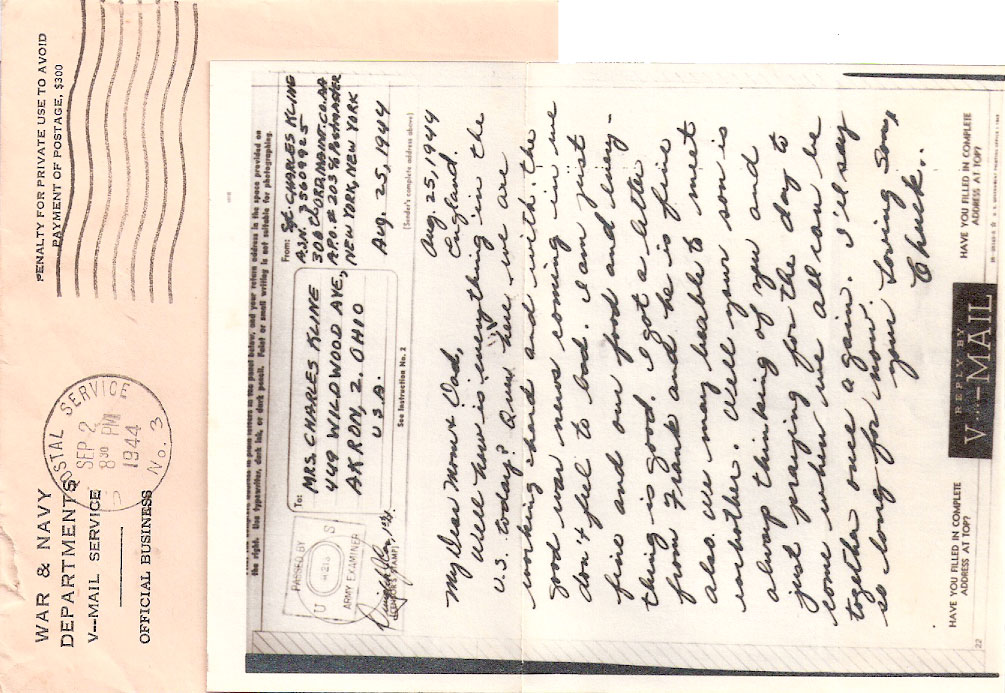 PENALTY FOR PRIVATE USE TO AVOID
PAYMENT OF POSTAGE, $300
WAR & NAVY
DEPARTMENTS
V--MAIL SERVICE
OFFICIAL BUSINESS
POSTAL SERVICE
SEP 2
8 30 PM
1944
No. 3
the right. Use typewriter, dark ink, or dark pencil. Faint or small writing is not suitable for photographing.
To:
MRS. CHARLES KLINE
449 WILDWOOD AVE,
AKRON, 2. OHIO
U.S.A.
From:
Sgt. CHARLES KLINE
A.S.N. 3560925
308 PL. ORD. MAINT. CO. AA
A.P.O. # 203 % Postmaster
NEW YORK, NEW YORK
Aug. 25, 1944
PASSED BY
U S
ARMY EXAMINER
(CENSOR'S STAMP)
See Instruction No. 2
(Sender's complete address above)
Aug. 25, 1944
England.
My Dear Mom & Dad,
Well how is everything in the
U.S. today? Over here we are
working hard and with the
good war news coming in we
don't feel to bad. I am just
fine and our food and every-
thing is good. I got a letter
from Frank and he is fine
also. We may beable to meet
eachother. Well your son is
always thinking of you and
just praying for the day to
come when we all can be
together once again. I'll say
so long for now.
your Loving Son,
Chuck.
HAVE YOU FILLED IN COMPLETE
ADDRESS AT TOP?
REPLY BY
V...-MAIL
HAVE YOU FILLED IN COMPLETE
ADDRESS AT TOP?